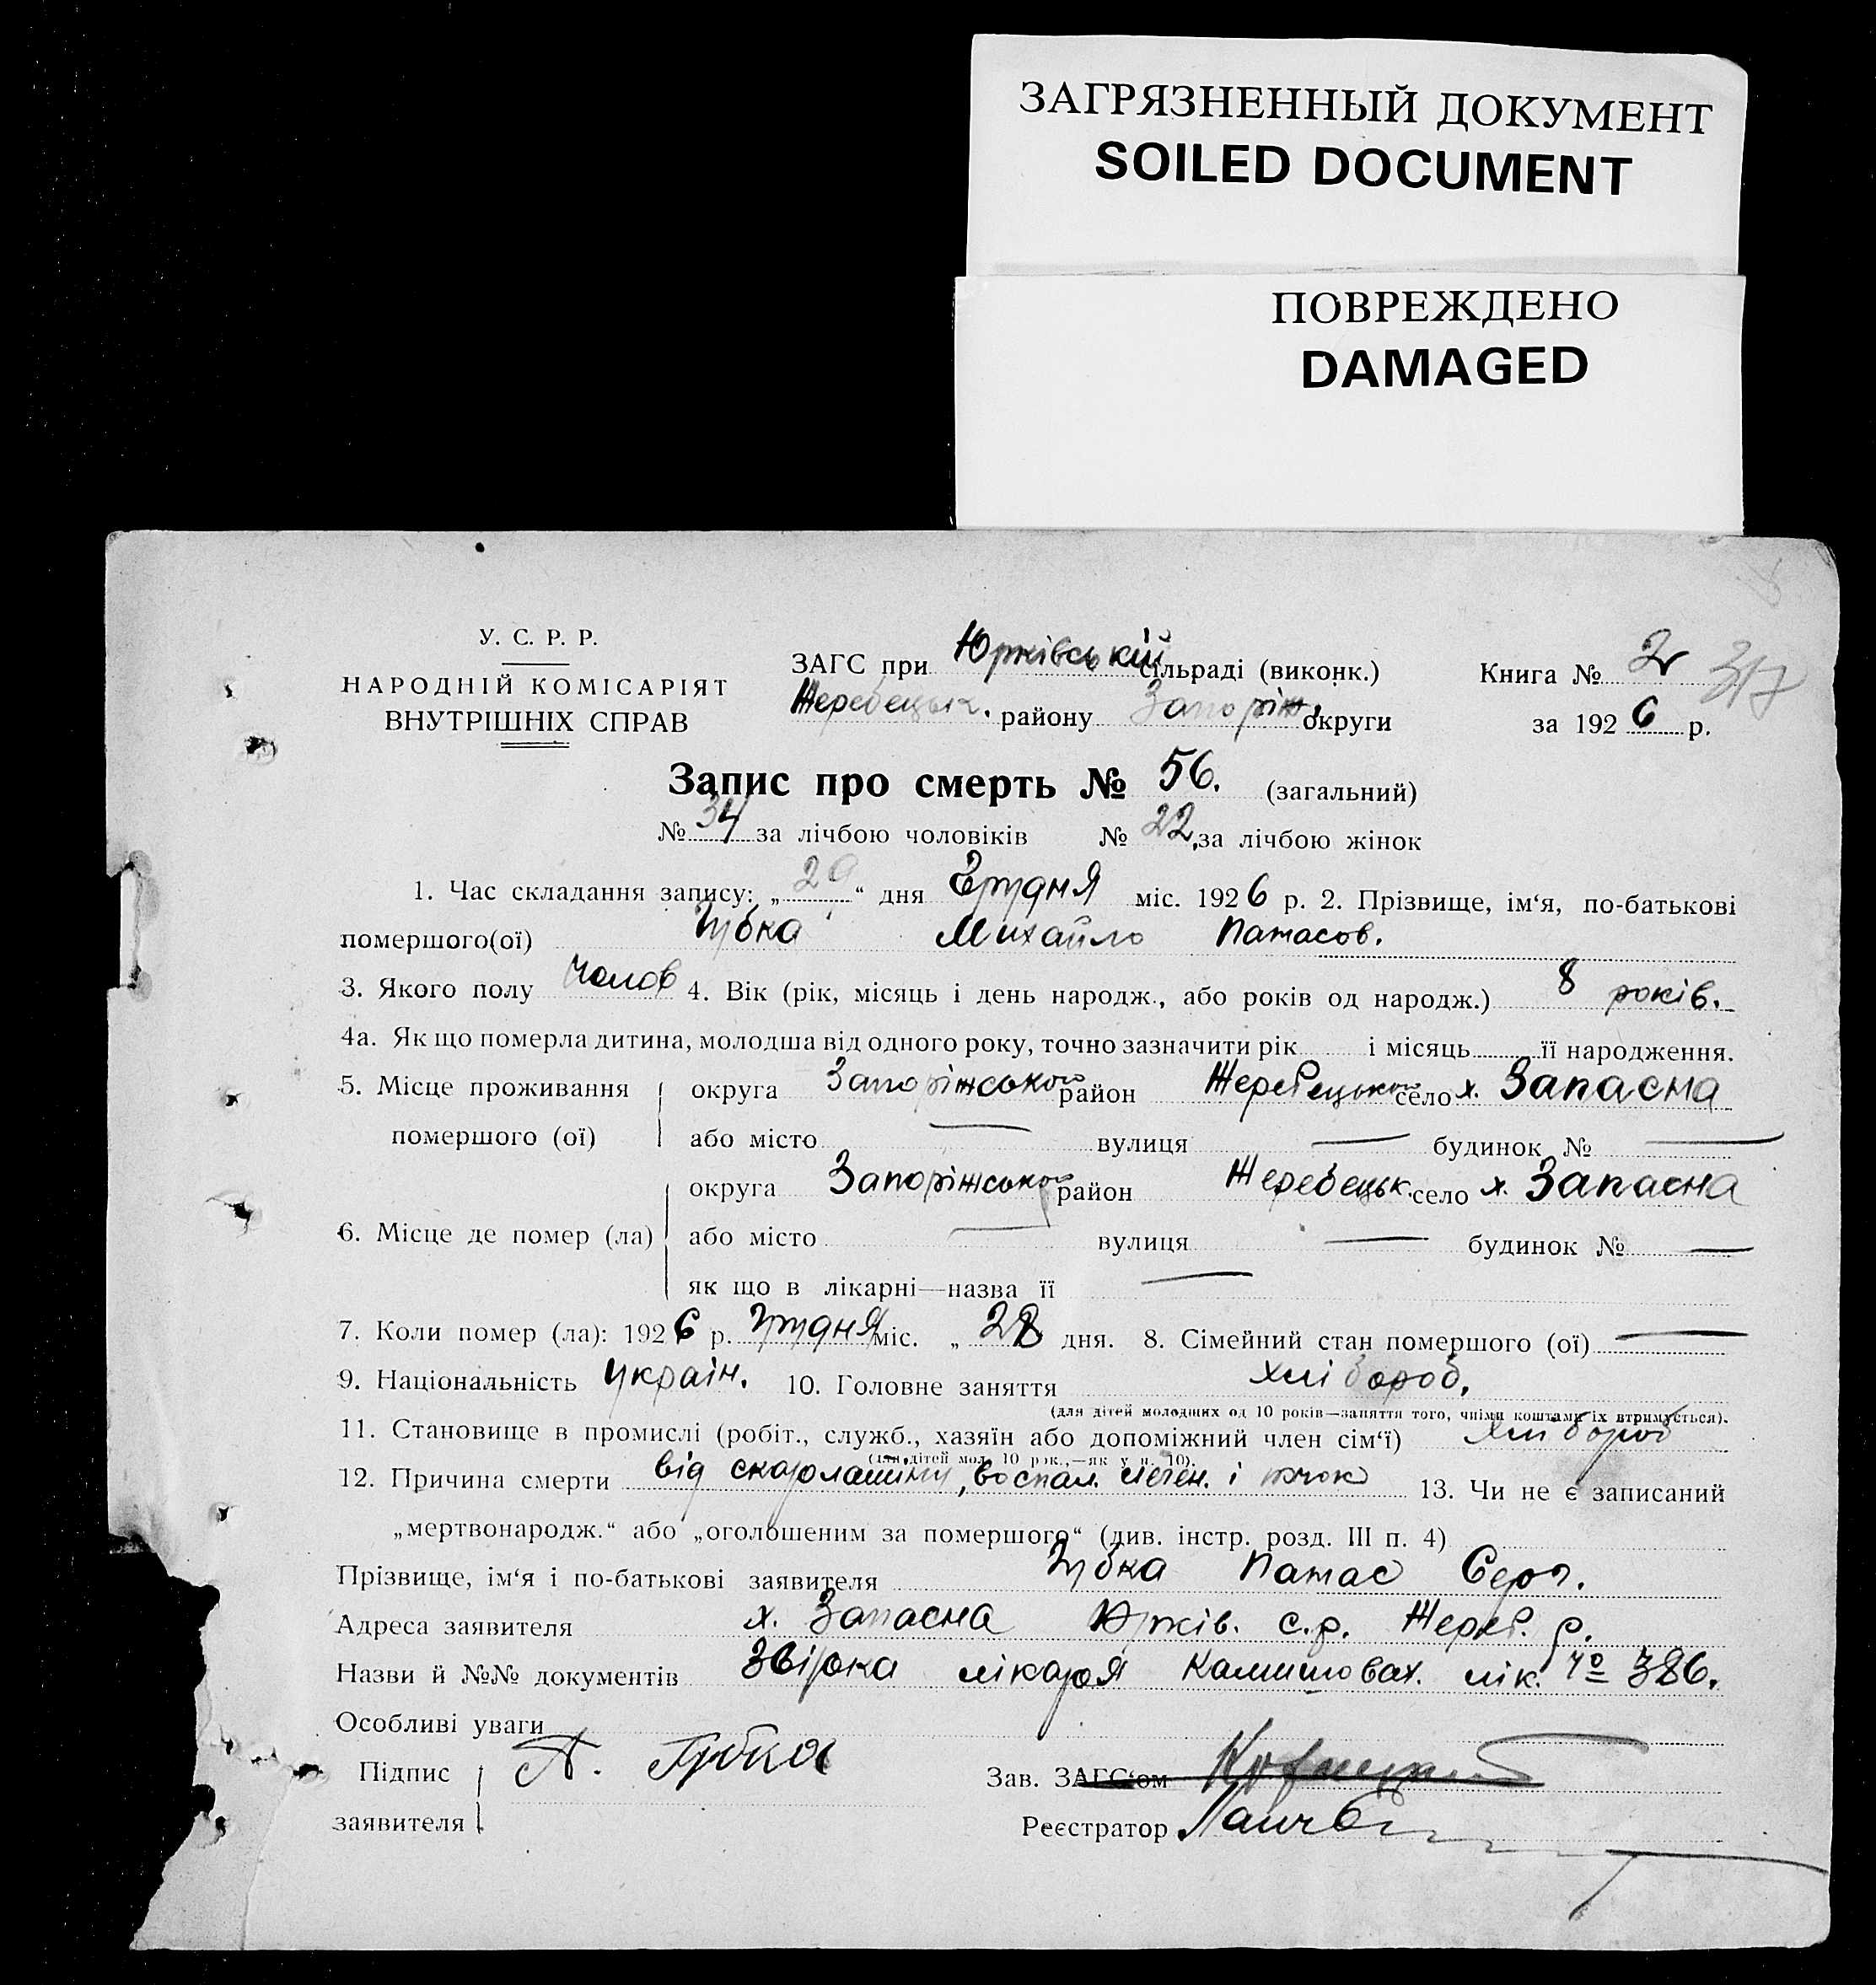 ЗАГРЯЗНЕННЫЙ ДОКУМЕНТ
SOILED DOCUMENT
ПОВРЕЖДЕНО
DAMAGED
У. С. Р. Р.
НАРОДНІЙ КОМІСАРІЯТ
ВНУТРІШНІХ СПРАВ
ЗАГС при Юрківській сільраді (виконк.)
Жеребецьк. району Запоріж. округи
Книга № 2 317
за 1926 р.
Запис про смерть № 56. (загальний)
№ 34 за лічбою чоловіків № 22, за лічбою жінок
1. Час складання запису: „29“ дня Грудня міс. 1926 р. 2. Прізвище, ім‘я, по-батькові
помершого(ої) Губка Михайло Панасов.
3. Якого полу Чолов 4. Вік (рік, місяць і день народж., або років од народж.) 8 років.
4а. Як що померла дитина, молодша від одного року, точно зазначити рік і місяць її народження.
5. Місце проживання округа Запоріжського район Жеребецького село х. Запасна
помершого (ої) або місто — вулиця — будинок № —
округа Запоріжського район Жеребецьк. село х. Запасна
6. Місце де помер (ла) або місто — вулиця — будинок № —
як що в лікарні—назва її —
7. Коли помер (ла): 1926 р. Грудня міс. „28 дня. 8. Сімейний стан помершого (ої) —
9. Національність Україн. 10. Головне заняття Хлібороб.
(для дітей молодших од 10 років—заняття того, чиїми коштами їх втримується).
11. Становище в промислі (робіт., служб., хазяїн або допоміжний член сім‘ї) Хлібороб
(для дітей мол. 10 рок.,—як у п. 10).
12. Причина смерти від скарлатини, воспал. леген. і почок 13. Чи не є записаний
„мертвонародж.“ або „оголошеним за помершого“ (див. інстр. розд. III п. 4)
Прізвище, ім‘я і по-батькові заявителя Губка Панас Серг.
Адреса заявителя х. Запасна Юрків. с.р. Жереб. р.
Назви й №№ документів Звірка лікаря Камишоват. лік. № 386.
Особливі уваги
Підпис П. Губка
заявителя
Зав. ЗАГС‘ом
Реєстратор